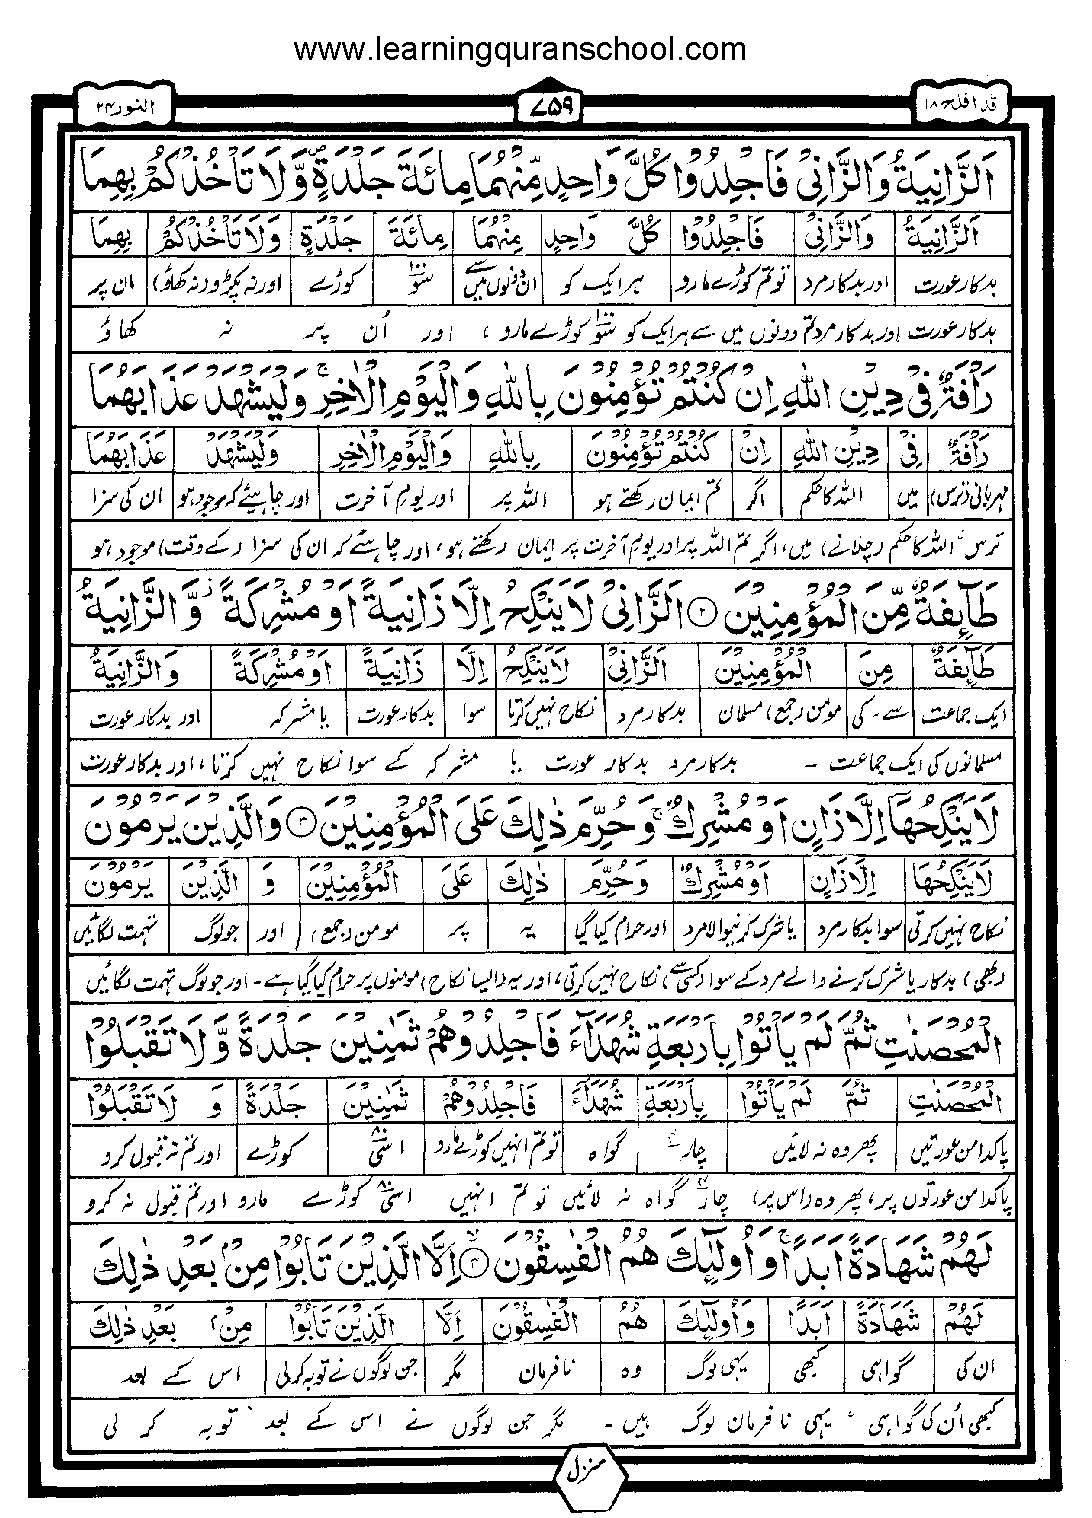 www.learningquranschool.com
قد افلح ۱۸
۷۵۹
النور ۲۴
اَلزَّانِيَةُ وَالزَّانِيْ فَاجْلِدُوْا كُلَّ وَاحِدٍ مِّنْهُمَا مِائَةَ جَلْدَةٍ ۪ وَّلَا تَاْخُذْكُمْ بِهِمَا
اَلزَّانِيَةُ وَالزَّانِيْ فَاجْلِدُوْا كُلَّ وَاحِدٍ مِنْهُمَا مِائَةَ جَلْدَةٍ وَلَا تَاْخُذْكُمْ بِهِمَا
بدکار عورت اور بدکار مرد تو تم کوڑے مارو ہر ایک کو ان دونوں میں سے سَو ۱۰۰ کوڑے اور نہ پکڑو (نہ کھاؤ) ان پر
بدکار عورت اور بدکار مرد تم دونوں میں سے ہر ایک کو سَو ۱۰۰ کوڑے مارو، اور اُن پر نہ کھاؤ
رَاْفَةٌ فِيْ دِيْنِ اللّٰهِ اِنْ كُنْتُمْ تُؤْمِنُوْنَ بِاللّٰهِ وَالْيَوْمِ الْاٰخِرِ ۚ وَلْيَشْهَدْ عَذَابَهُمَا
رَاْفَةٌ فِيْ دِيْنِ اللّٰهِ اِنْ كُنْتُمْ تُؤْمِنُوْنَ بِاللّٰهِ وَالْيَوْمِ الْاٰخِرِ وَلْيَشْهَدْ عَذَابَهُمَا
مہربانی (ترس) میں اللہ کا حکم اگر تم ایمان رکھتے ہو اللہ پر اور یومِ آخرت اور چاہیئے کہ موجود ہو ان کی سزا
ترس اللہ کا حکم (چلانے) میں، اگر تم اللہ پر اور یومِ آخرت پر ایمان رکھتے ہو، اور چاہیئے کہ ان کی سزا (کے وقت) موجود ہو
طَآئِفَةٌ مِّنَ الْمُؤْمِنِيْنَ ۲ اَلزَّانِيْ لَا يَنْكِحُ اِلَّا زَانِيَةً اَوْ مُشْرِكَةً ۡ وَّالزَّانِيَةُ
طَآئِفَةٌ مِنَ الْمُؤْمِنِيْنَ اَلزَّانِيْ لَا يَنْكِحُ اِلَّا زَانِيَةً اَوْ مُشْرِكَةً وَالزَّانِيَةُ
ایک جماعت سے ۔ کی مومن (جمع) مسلمان بدکار مرد نکاح نہیں کرتا سوا بدکار عورت یا مشرکہ اور بدکار عورت
مسلمانوں کی ایک جماعت ۔ بدکار مرد بدکار عورت یا مشرکہ کے سوا نکاح نہیں کرتا، اور بدکار عورت
لَا يَنْكِحُهَآ اِلَّا زَانٍ اَوْ مُشْرِكٌ ۚ وَحُرِّمَ ذٰلِكَ عَلَى الْمُؤْمِنِيْنَ ۳ وَالَّذِيْنَ يَرْمُوْنَ
لَا يَنْكِحُهَا اِلَّا زَانٍ اَوْ مُشْرِكٌ وَحُرِّمَ ذٰلِكَ عَلَى الْمُؤْمِنِيْنَ وَ الَّذِيْنَ يَرْمُوْنَ
نکاح نہیں کرتی سوا بدکار مرد یا شرک کرنیوالا مرد اور حرام کیا گیا یہ پر مومن (جمع) اور جو لوگ تہمت لگائیں
(بھی) بدکار یا شرک کرنے والے مرد کے سوا (کسی سے) نکاح نہیں کرتی، اور یہ (ایسا نکاح) مومنوں پر حرام کیا گیا ہے ۔ اور جو لوگ تہمت لگائیں
الْمُحْصَنٰتِ ثُمَّ لَمْ يَاْتُوْا بِاَرْبَعَةِ شُهَدَآءَ فَاجْلِدُوْهُمْ ثَمٰنِيْنَ جَلْدَةً وَّلَا تَقْبَلُوْا
الْمُحْصَنٰتِ ثُمَّ لَمْ يَاْتُوْا بِاَرْبَعَةِ شُهَدَآءَ فَاجْلِدُوْهُمْ ثَمٰنِيْنَ جَلْدَةً وَ لَا تَقْبَلُوْا
پاکدامن عورتیں پھر وہ نہ لائیں چار ۴ گواہ تو تم انہیں کوڑے مارو اسّی ۸۰ کوڑے اور تم نہ قبول کرو
پاکدامن عورتوں پر، پھر وہ (اس پر) چار ۴ گواہ نہ لائیں تو تم انہیں اسّی ۸۰ کوڑے مارو اور تم قبول نہ کرو
لَهُمْ شَهَادَةً اَبَدًا ۚ وَاُولٰٓئِكَ هُمُ الْفٰسِقُوْنَ ۴ اِلَّا الَّذِيْنَ تَابُوْا مِنْۢ بَعْدِ ذٰلِكَ
لَهُمْ شَهَادَةً اَبَدًا وَاُولٰٓئِكَ هُمُ الْفٰسِقُوْنَ اِلَّا الَّذِيْنَ تَابُوْا مِنْۢ بَعْدِ ذٰلِكَ
ان کی گواہی کبھی یہی لوگ وہ نافرمان مگر جن لوگوں نے توبہ کرلی اس کے بعد
کبھی اُن کی گواہی یہی نافرمان لوگ ہیں ۔ مگر جن لوگوں نے اس کے بعد توبہ کر لی
منزل